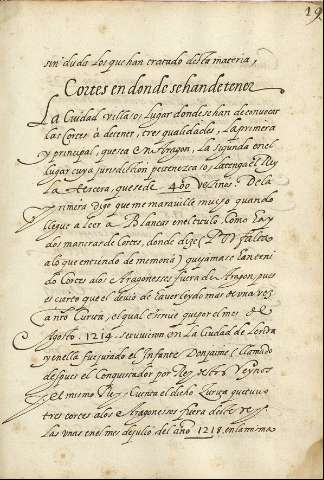 19
sin duda los que han tratado desta materia,
Cortes en donde se han de tener
La Ciudad, villa, o, lugar donde se han de convocar
las Cortes à de tener, tres qualidades, La primera
y principal, que sea en Aragon, La segunda en el
lugar cuya jurisdiction pertenezca, o, la tenga el Rey
La tercera, que sea de 400 vezinos. De la
primera digo que me maraville mucho quando
llegue a leer a Blancas en el titulo como hay
dos maneras de Cortes, donde dize (Por falta
a lo que entiendo de memoria) que jamas se han teni
do Cortes a los Aragonesses fuera de Aragon, pues
es cierto que el devio de haver leydo mas de una vez
a nro Curita, el qual escrive que por el mes de
Agosto 1214. se tuvieron en La Ciudad de Lerida
y en ella fue jurado el Infante Don Jaime (llamado
despues el Conquistador por Rey destos Reynos
y el mismo Rey Cuenta el dicho Curita que tuvo
tres cortes a los Aragonesses fuera deste rey
Las unas en el mes de julio del año 1218. en la misma